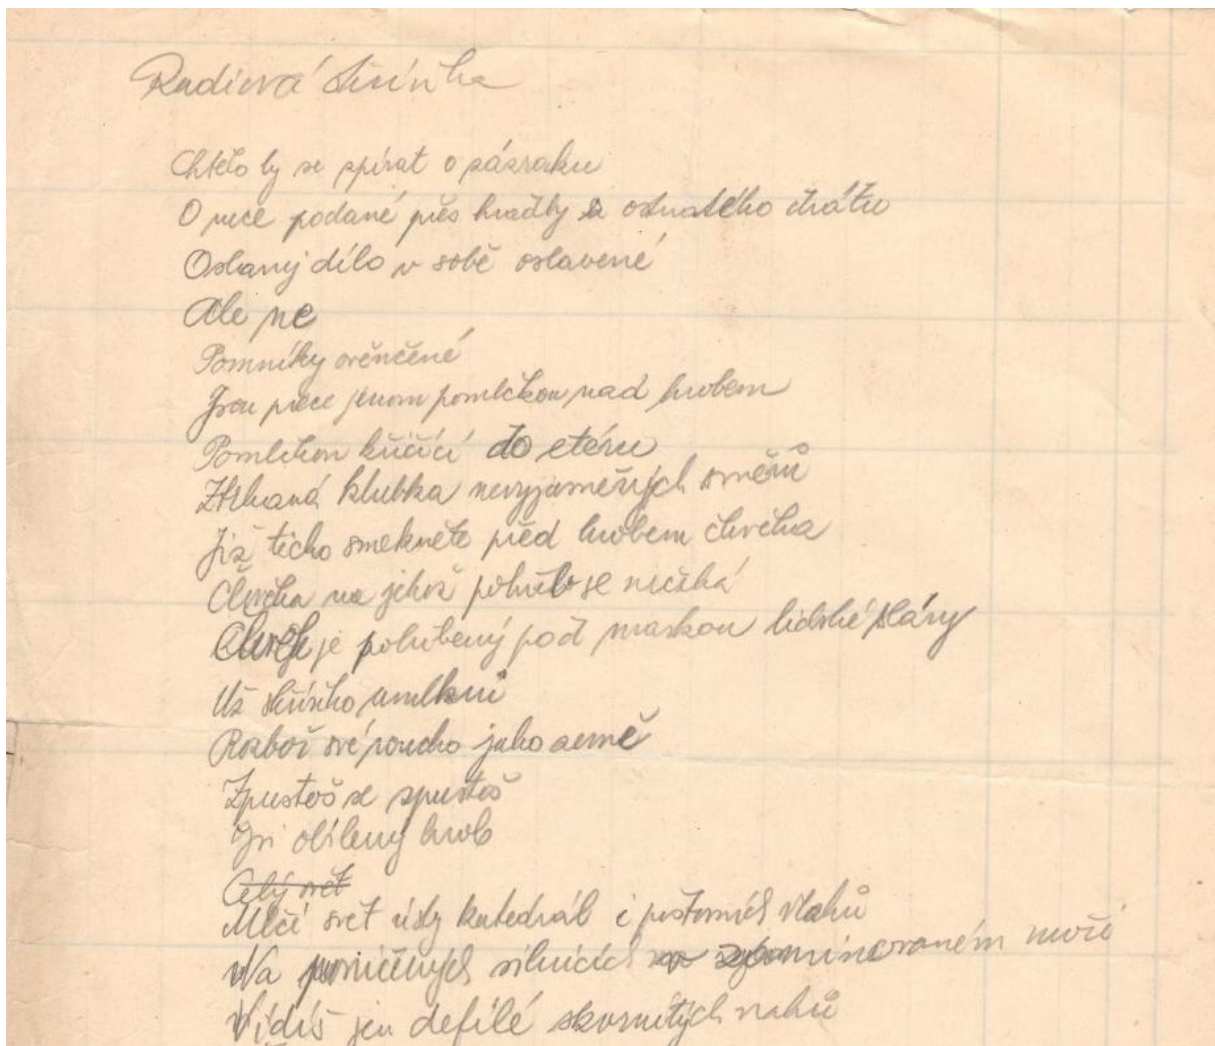 Radiová skříňka
Chtělo by se zpívat o zázraku
O ruce podané přes hradby z ostnatého drátu
Oslavuj dílo v sobě oslavené
Ale ne
Pomníky ověnčené
Jsou přece jenom pomlčkou nad hrobem
Pomlčkou křičící do éteru
Ztrhaná klubka nevyjasněných směrů
Již ticho smekněte před hrobem člověka
Člověka na jehož pohřeb se nečeká
Člověk je pohřbený pod maskou lidské
Už skříňko umlkni
Rozboř své pouzdro jako země
Zpustoš se zpustoš
Jsi obílený hrob
Celý svět
Mlčí svět ústy katedrál i poštovních vlaků
Na poničených silnicích na zaminovaném moři
Vidíš jen defilé skvrnitých